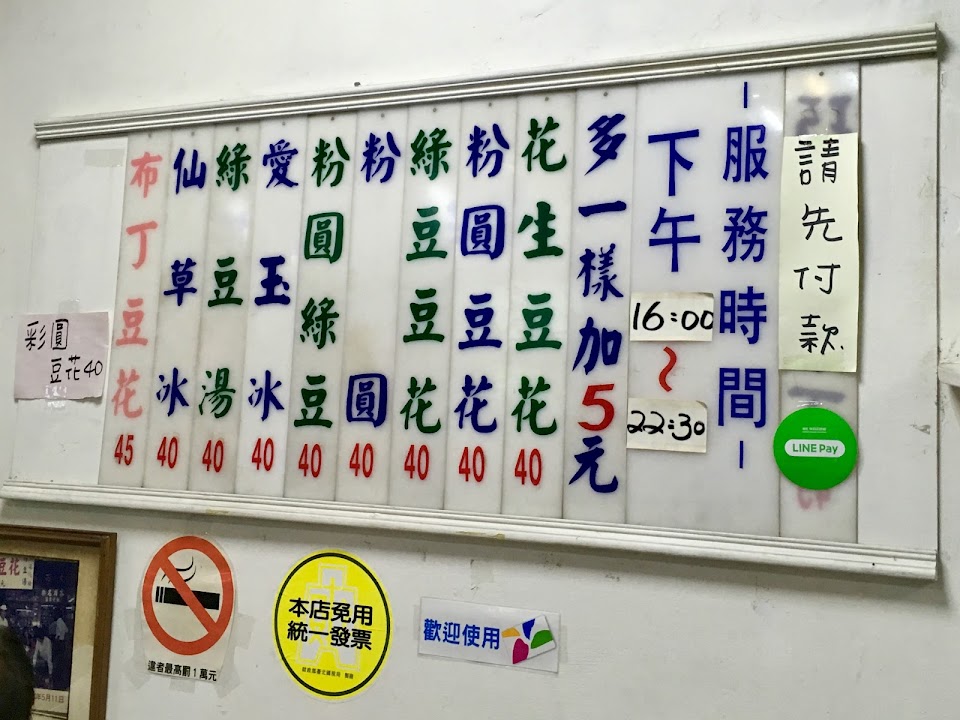 請先付款
LINE Pay
－服務時間－
下午
16:00
～
22:30
多一樣加5元
花生豆花 40
粉圓豆花 40
綠豆豆花 40
粉圓 40
粉圓綠豆 40
愛玉冰 40
綠豆湯 40
仙草冰 40
布丁豆花 45
彩圓
豆花40
違者最高罰1萬元
本店免用
統一發票
歡迎使用
年5月11日